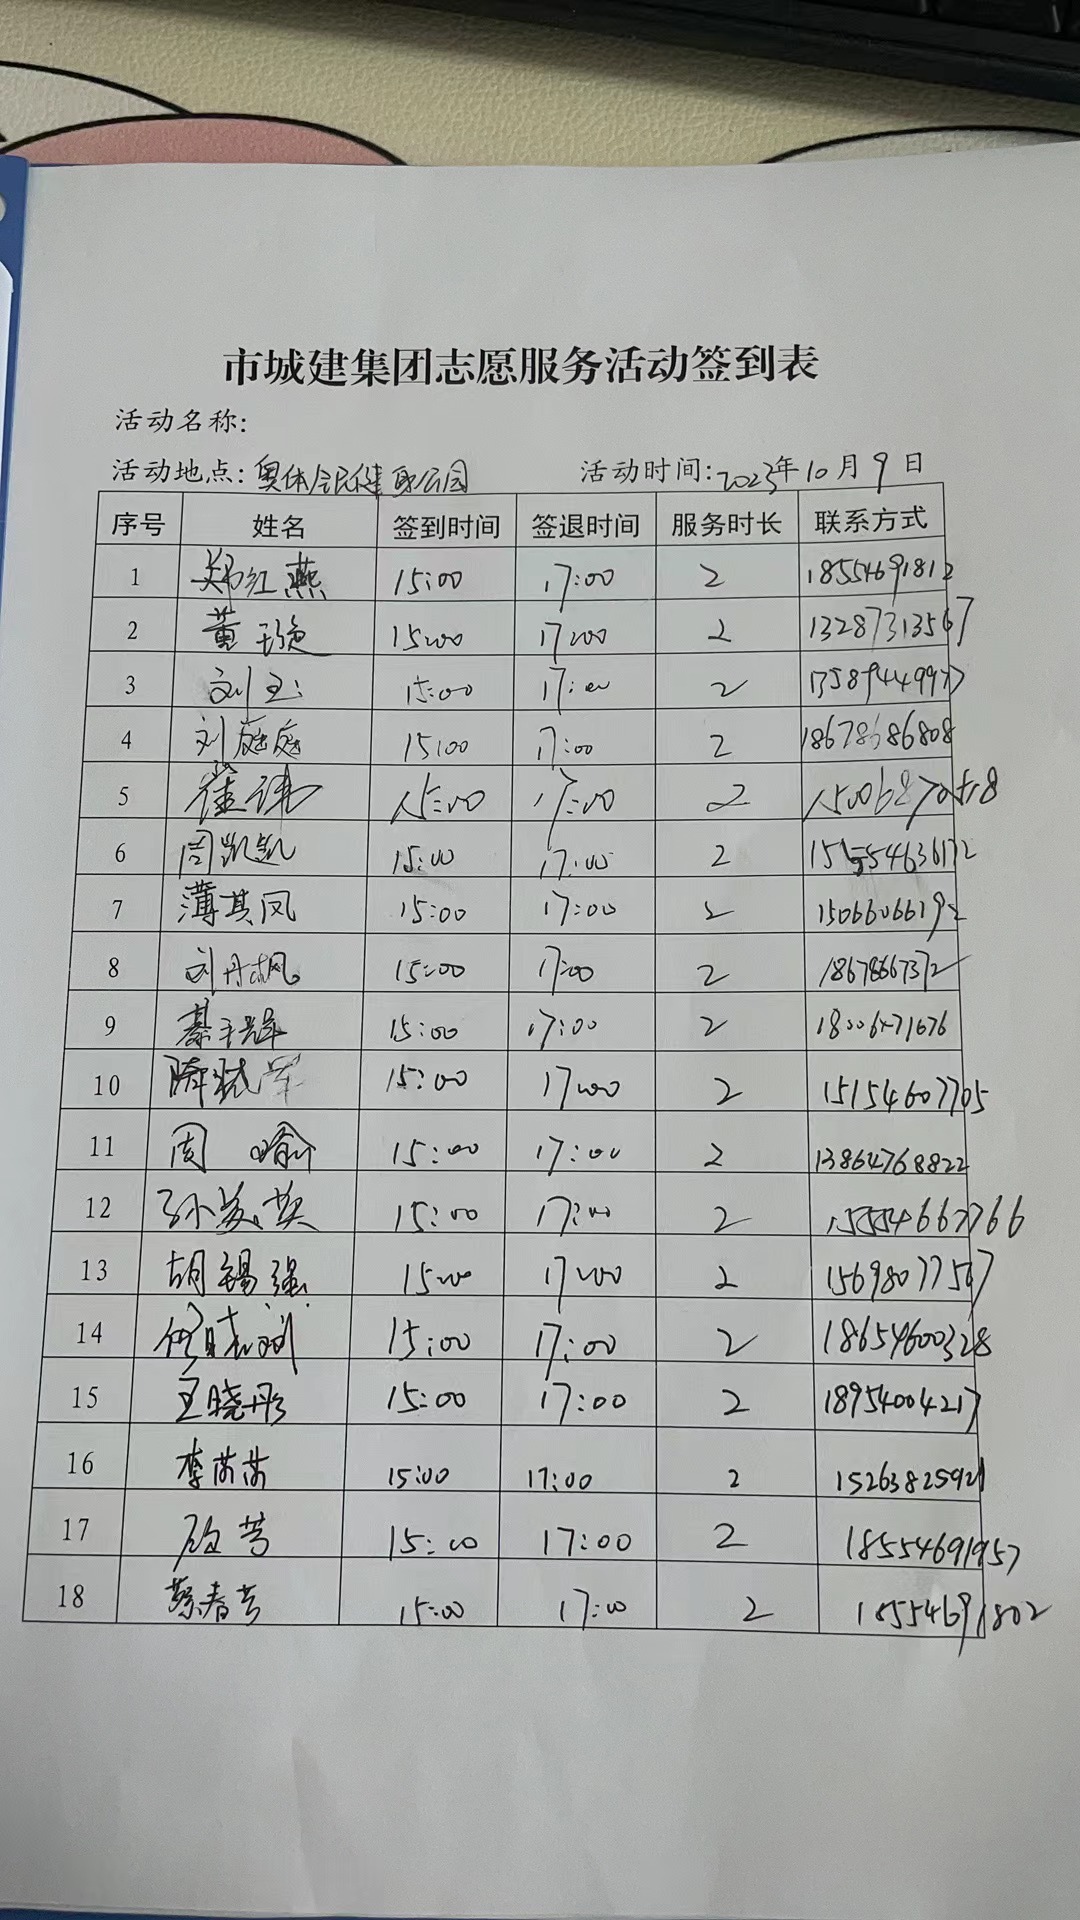 市城建集团志愿服务活动签到表
活动名称:
活动地点: 奥体全民健身公园 活动时间: 2023年10月9日
序号 姓名 签到时间 签退时间 服务时长 联系方式
1 郑红燕 15:00 17:00 2 18554691812
2 董璇 15:00 17:00 2 13287313567
3 刘玉 15:00 17:00 2
4 刘庭庭 15:00 17:00 2 18678686808
5 崔伟 15:00 17:00 2
6 周凯凯 15:00 17:00 2
7 薄其凤 15:00 17:00 2 15066066192
8 刘丹枫 15:00 17:00 2 18678667372
9 15:00 17:00 2
10 15:00 17:00 2 15154607705
11 周喻 15:00 17:00 2 13864768822
12 孙美英 15:00 17:00 2 15554667766
13 胡锡强 15:00 17:00 2 15698077567
14 15:00 17:00 2 18654600328
15 王晓彤 15:00 17:00 2 18954004217
16 李芮芮 15:00 17:00 2 15263825921
17 15:00 17:00 2 18554691957
18 蔡春芳 15:00 17:00 2 18554691802